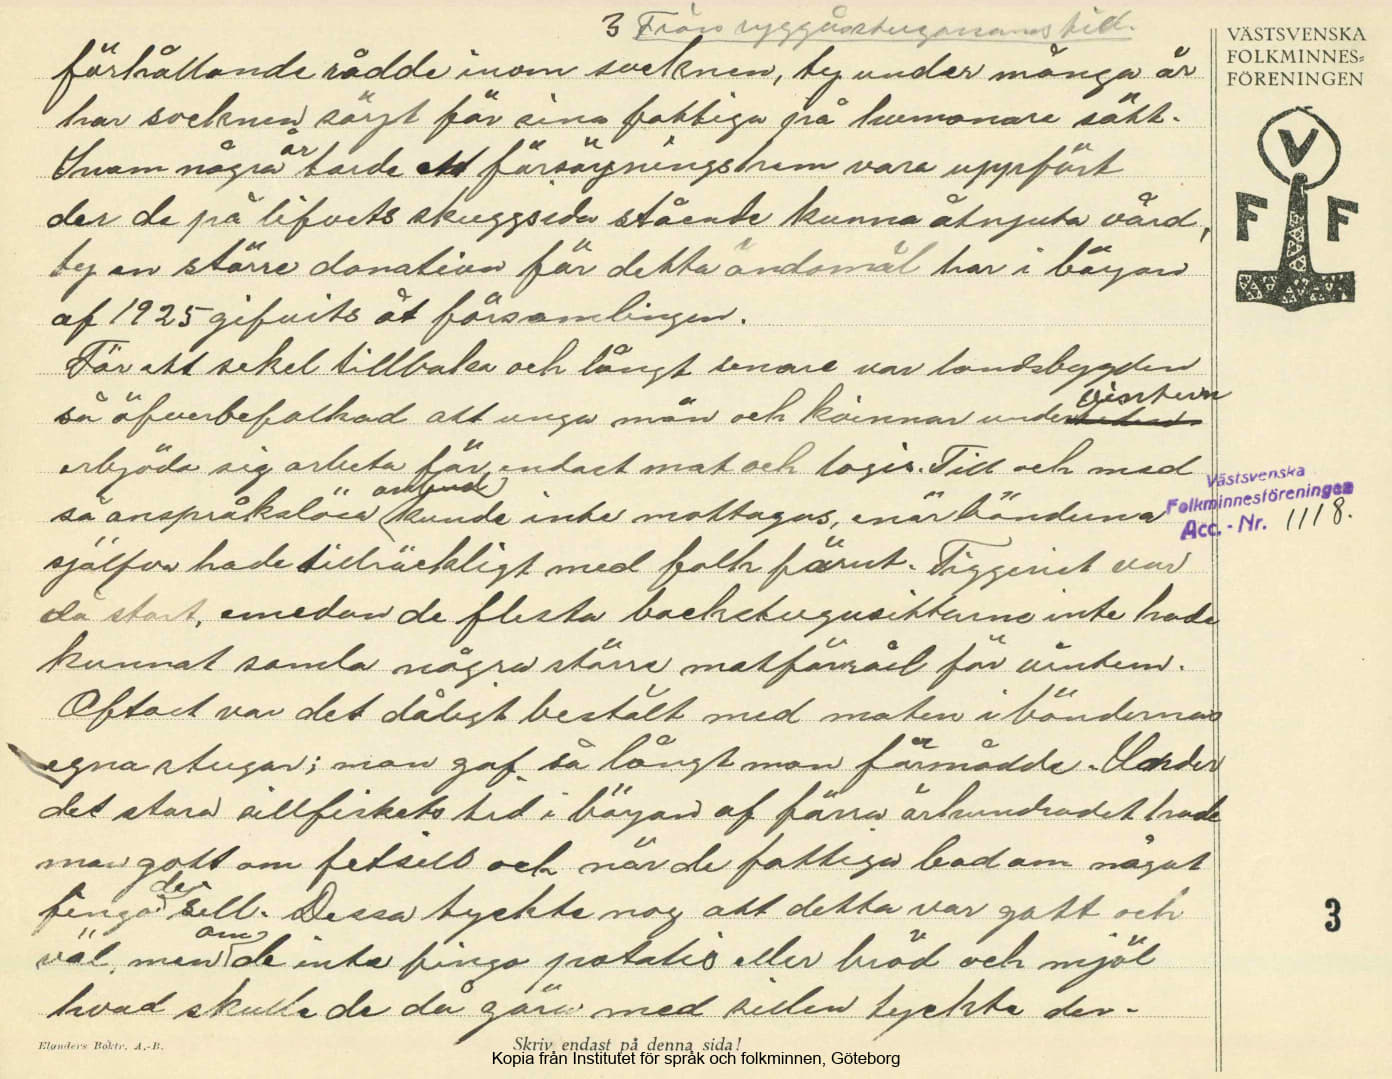 3 Från ryggåsstugornas tid.
VÄSTSVENSKA
FOLKMINNES=
FÖRENINGEN
V
F F
förhållande rådde inom socknen, ty under många år
har socknen sörjt för sina fattiga på humanare sätt.
Inom några år torde ett försörjningshem vara uppfört
der de på lifvets skuggsida stående kunna åtnjuta vård,
ty en större donation för detta ändomål har i början
af 1925 gifvits åt församlingen.
För ett sekel tillbaka och långt senare var landsbygden
så öfverbefolkad att unga män och kvinnor under vintern
erbjöda sig arbeta för endast mat och logis. Till och med
så anspråkslösa anbud kunde inte mottagas, enär bönderna
sjelfva hade tillräckligt med folk förut. Tiggeriet var
då stort, emedan de flesta backstugusittarne inte hade
kunnat samla några större matförråd för vintern.
Oftast var det dåligt bestält med maten i böndernas
egna stugor; man gaf så långt man förmådde. Under
det stora sillfiskets tid i början af förra århundradet hade
man godt om fetsill och när de fattiga bad om något
fingo de sill. Dessa tyckte nog att detta var gott och
väl, men om de inte fingo potatis eller bröd och mjöl
hvad skulle de då göra med sillen tyckte der-
Västsvenska
Folkminnesföreningen
Acc. - Nr. 1118.
3
Elanders Boktr. A.-B.
Skriv endast på denna sida!
Kopia från Institutet för språk och folkminnen, Göteborg